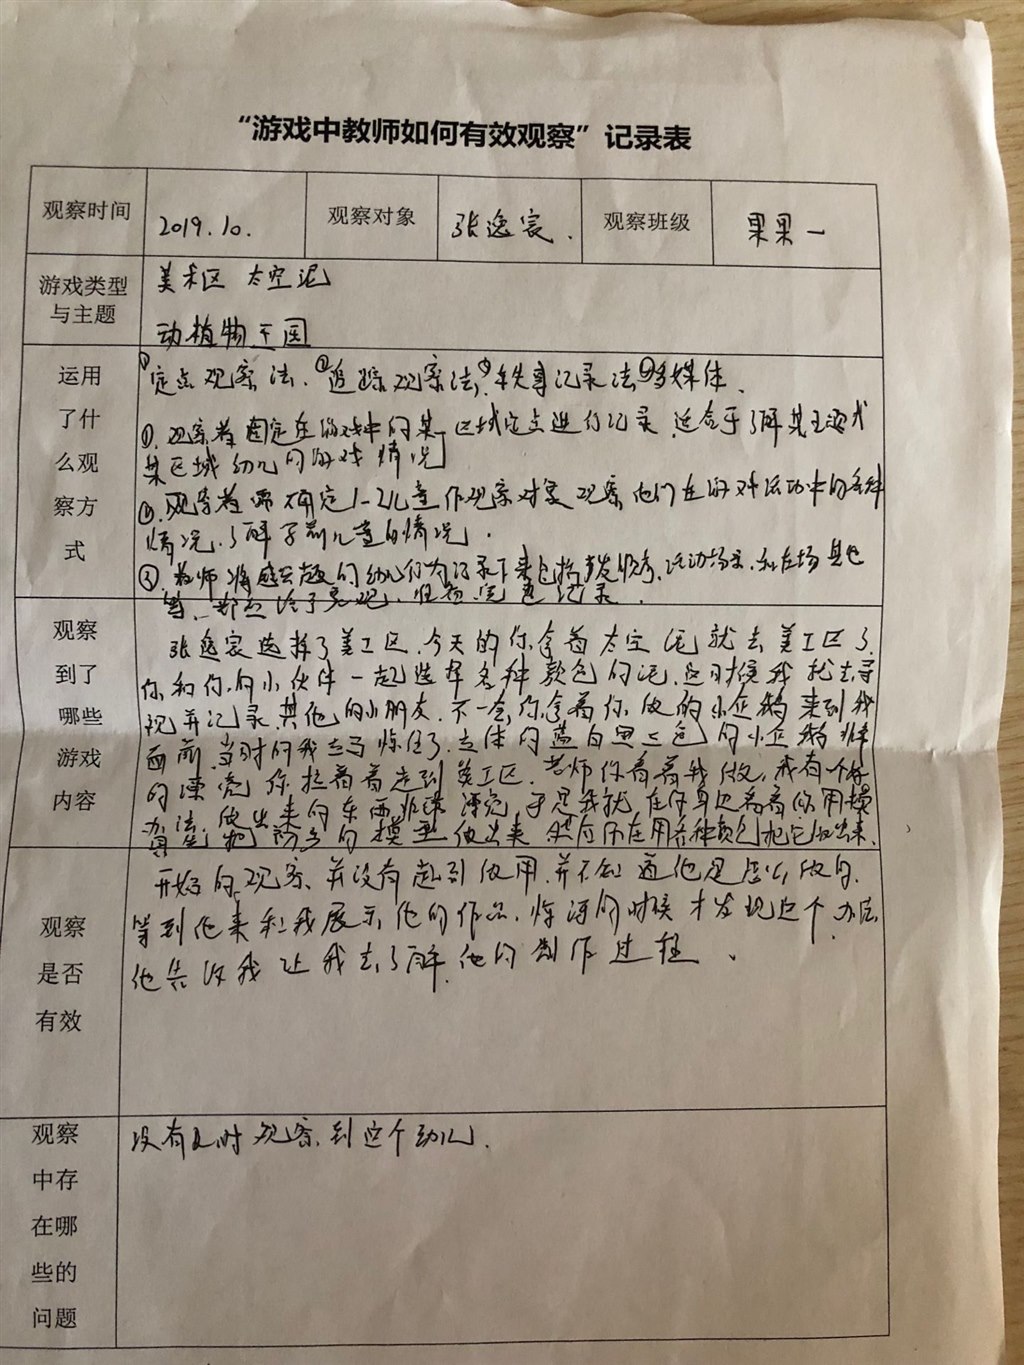 “游戏中教师如何有效观察”记录表
观察时间 2019.10. 观察对象 张逸宸. 观察班级 果果一
游戏类型与主题
美术区 太空泥
动植物王国
运用了什么观察方式
①定点观察法、②追踪观察法、③轶事记录法④多媒体.
①.观察者固定在游戏中的某一区域定点进行记录 适合于了解某主题或
某区域幼儿的游戏情况
②.观察者 确定1-2儿童作观察对象 观察他们在游戏活动中的各种
情况.了解 儿童的情况.
③.教师将感兴趣的幼儿行为记录下来包括 活动场景.和在场其他
客观、 记录.
观察到了哪些游戏内容
张逸宸选择了美工区.今天的你拿着太空泥就去美工区了
你和你的小伙伴一起选择各种颜色的泥.这时候我就去寻
视并记录.其他的小朋友.不一会,你拿着你做的小企鹅来到我
面前.当时的我 惊住了.立体的蓝白黑三色的小企鹅
的漂亮 你拉着着走到美工区.老师你看着我做,我有一个好
办法.做出来的东西非常漂亮.于是我就在你身边看着你用
的模型做出来 在用各种颜色把它 出来.
观察是否有效
开始的观察、并没有起到作用.并不知道他是怎么做的.
等到他来和我展示他的作品.惊讶的时候才发现这个办法
他告诉我让我去了解他的制作过程.
观察中存在哪些的问题
没有及时观察到这个幼儿.